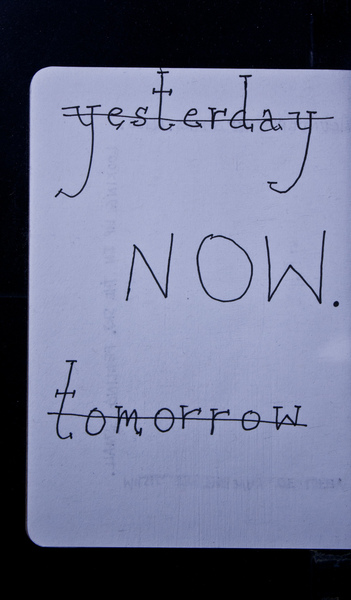 yesterday
NOW.
tomorrow